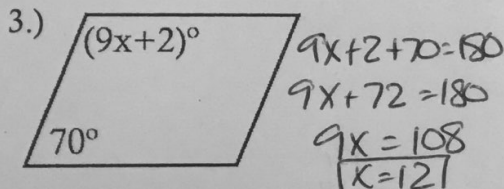 3.)
(9x+2)º
70º
9x+2+70=180
9x+72=180
9x=108
x=12